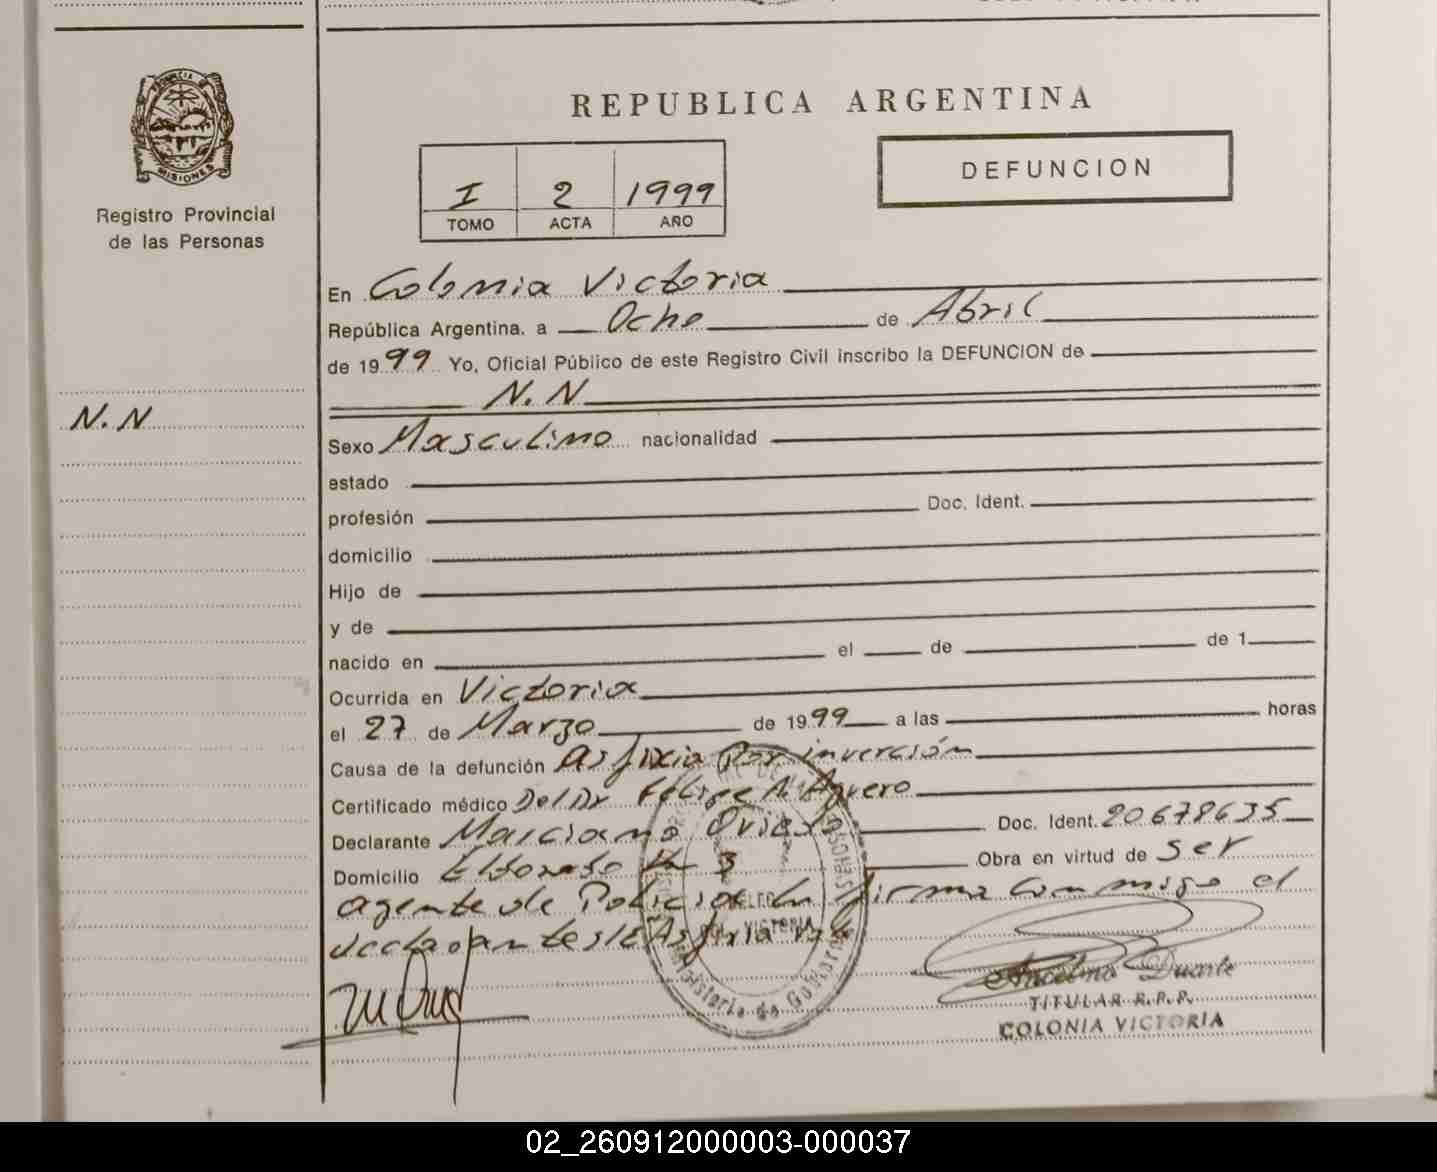 PROVINCIA DE
MISIONES
Registro Provincial
de las Personas
REPUBLICA ARGENTINA
I 2 1999
TOMO ACTA AÑO
DEFUNCION
N.N
En Colonia Victoria
República Argentina. a Ocho de Abril
de 1999 Yo, Oficial Público de este Registro Civil inscribo la DEFUNCION de
N.N
Sexo Masculino nacionalidad
estado
profesión Doc. Ident.
domicilio
Hijo de
y de
nacido en el de de 1
Ocurrida en Victoria
el 27 de Marzo de 1999 a las horas
Causa de la defunción Asfixia Por inverción
Certificado médico Del Dr Felipe N. Aguero
Declarante Marciano Oviedo Doc. Ident. 20678635
Domicilio Eldorado Km 3 Obra en virtud de ser
agente de Policia firma conmigo el
declarante Asfixia vale
VICTORIA
Ministerio de Gobierno
Anselmo Duarte
TITULAR R.P.P.
COLONIA VICTORIA
02_260912000003-000037